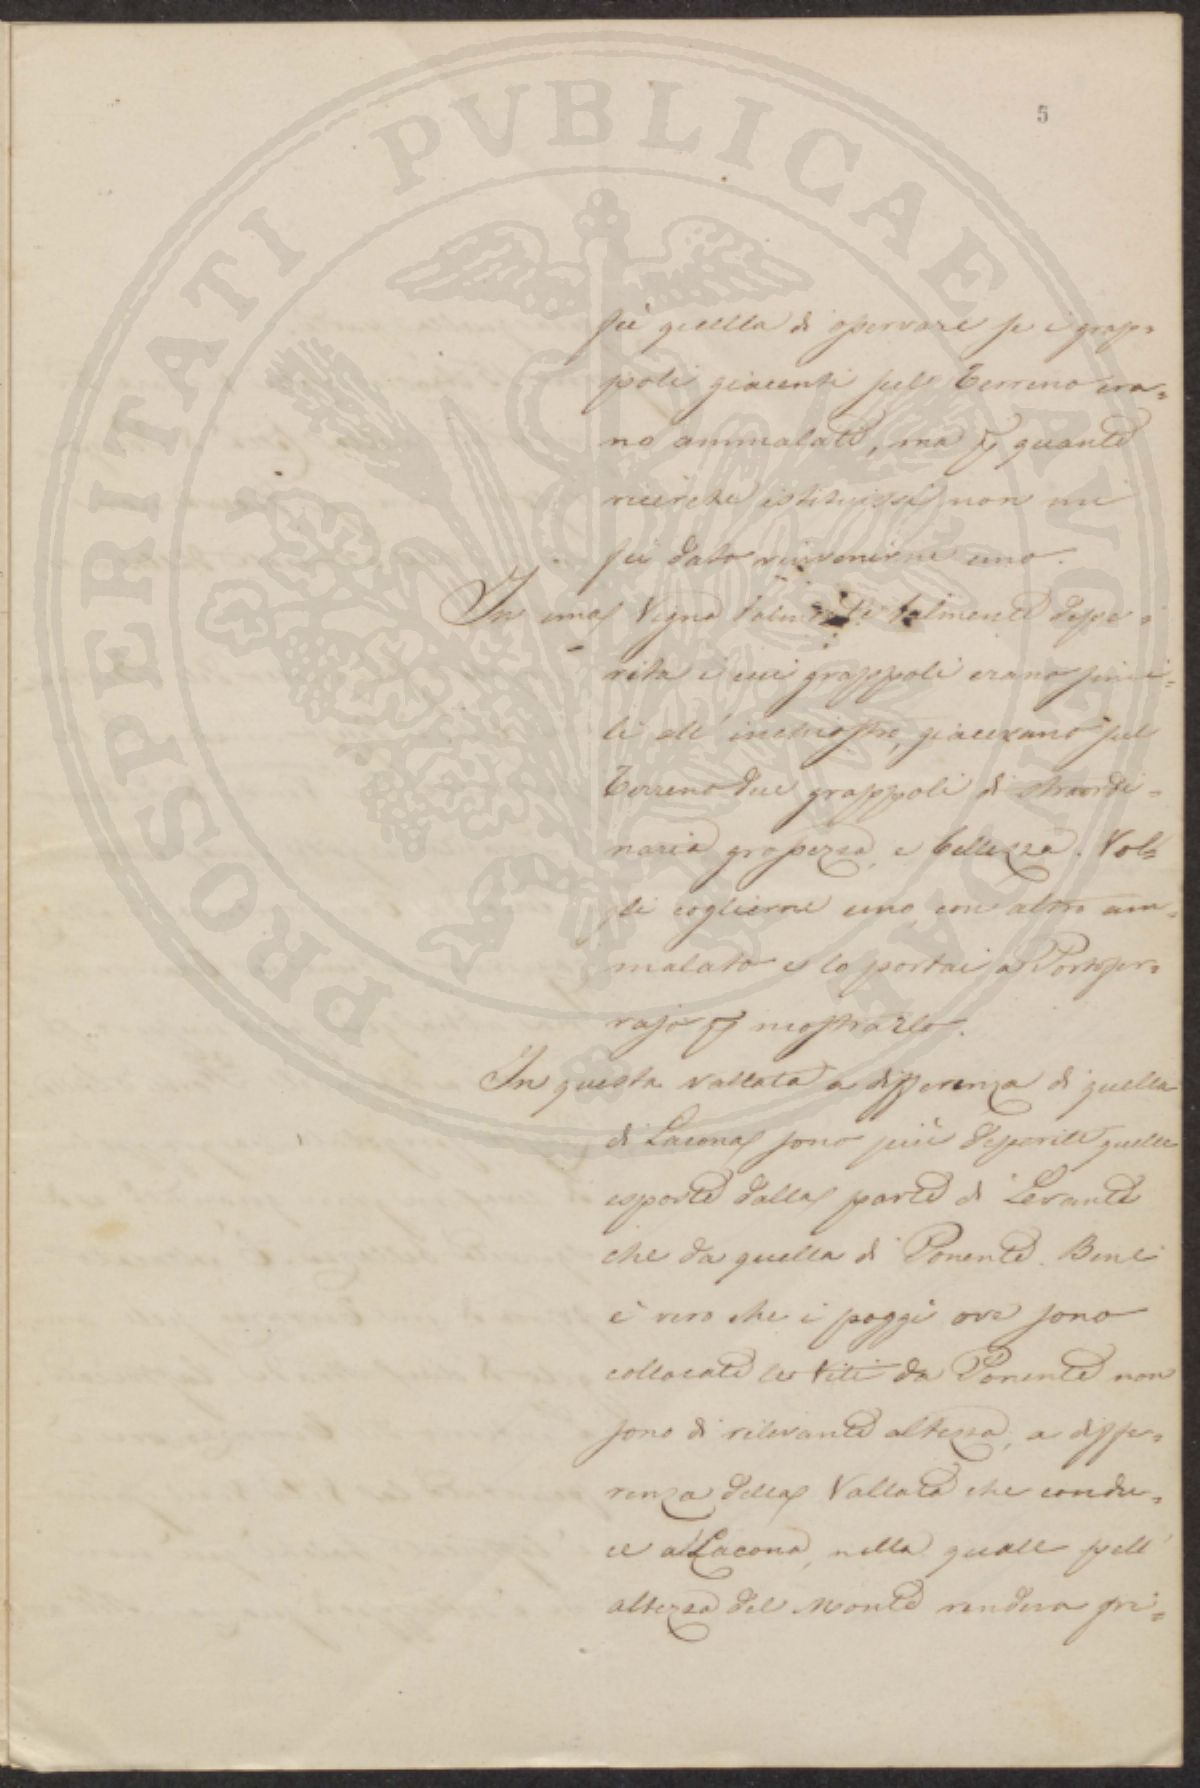 PROSPERITATI PVBLICAE AVGENDAE
5
fù quella di osservare se i grap=
poli giacenti sul Terreno era=
no ammalati, ma p quante
ricerche istituissi non mi
fù dato rinvenirne uno.
In una Vigna talmente depe=
rita i cui grappoli erano simi=
li all'inchiostro, giacevano sul
Terreno due grappoli di straordi=
naria grossezza, e bellezza. Vol=
li coglierne uno con altro am=
malato e lo portai a Portofer=
rajo p mostrarlo.
In questa vallata a differenza di quella
di Lacona sono più deperite quelle
esposte dalla parte di Levante
che da quella di Ponente. Bene
è vero che i poggi ove sono
collocate le Viti da Ponente non
sono di rilevante altezza, a diffe=
renza della Vallata che condu=
ce a Lacona, nella quale pell'
altezza del Monte rendeva pri=